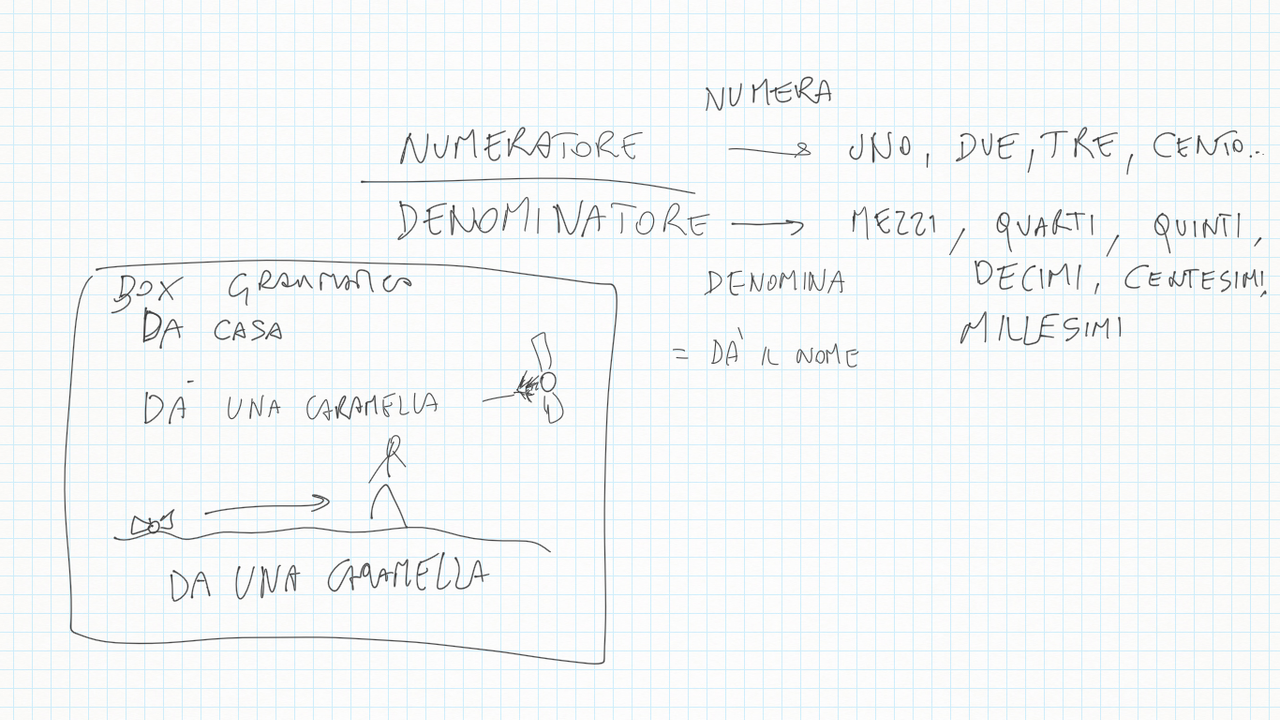 NUMERA
NUMERATORE → UNO, DUE, TRE, CENTO...
DENOMINATORE → MEZZI, QUARTI, QUINTI,
DENOMINA DECIMI, CENTESIMI,
MILLESIMI
= DÀ IL NOME
BOX GRAMMATICO
DA CASA
DÀ UNA CARAMELLA
DA UNA CARAMELLA